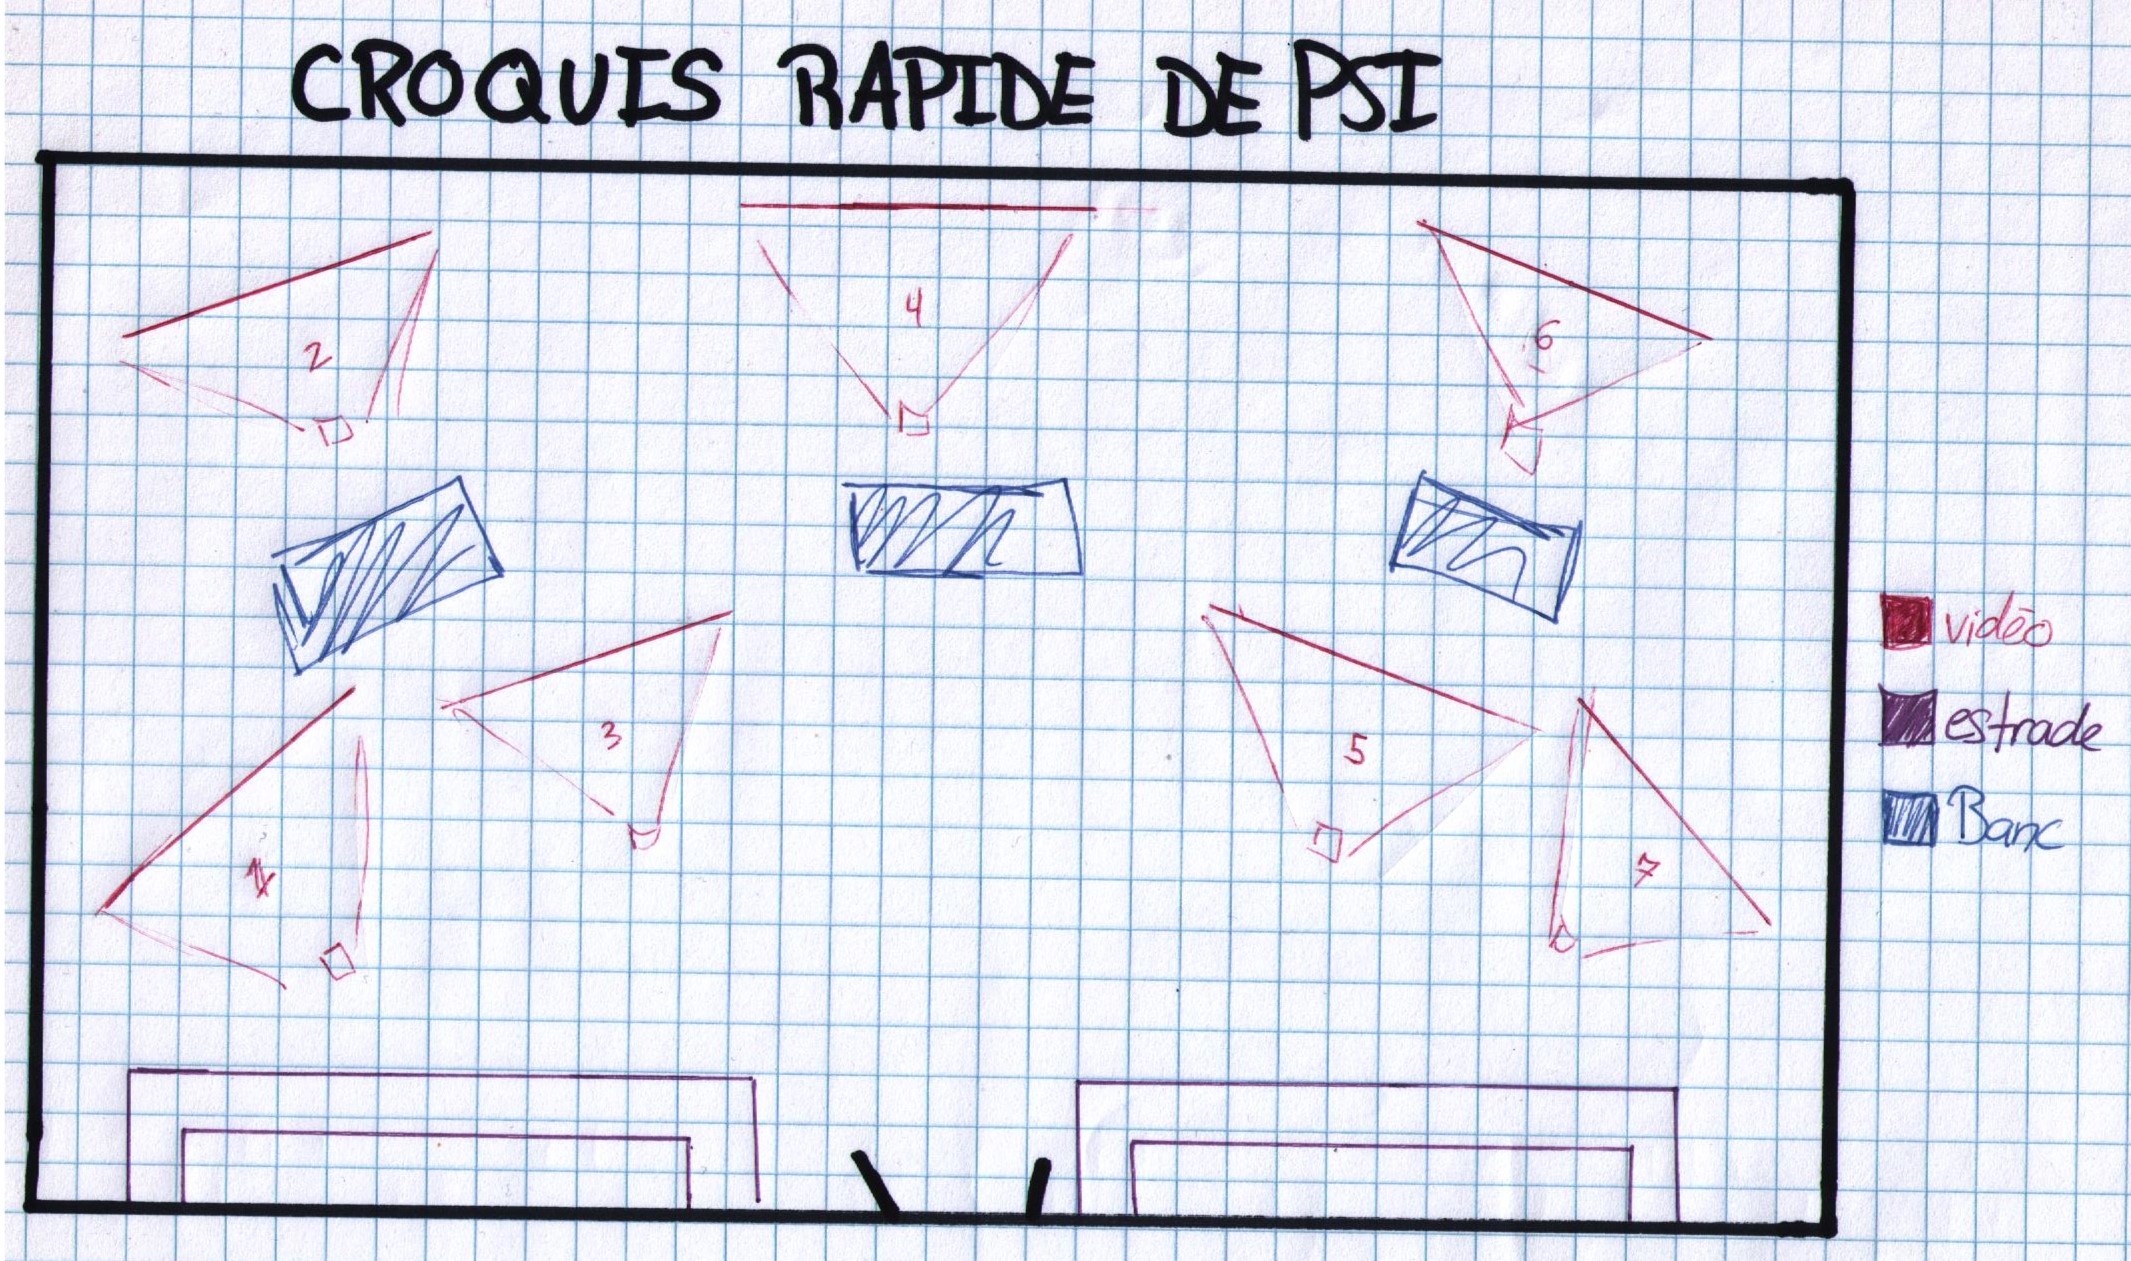 CROQUIS RAPIDE DE PSI
2
4
6
3
5
1
7
vidéo
estrade
Banc